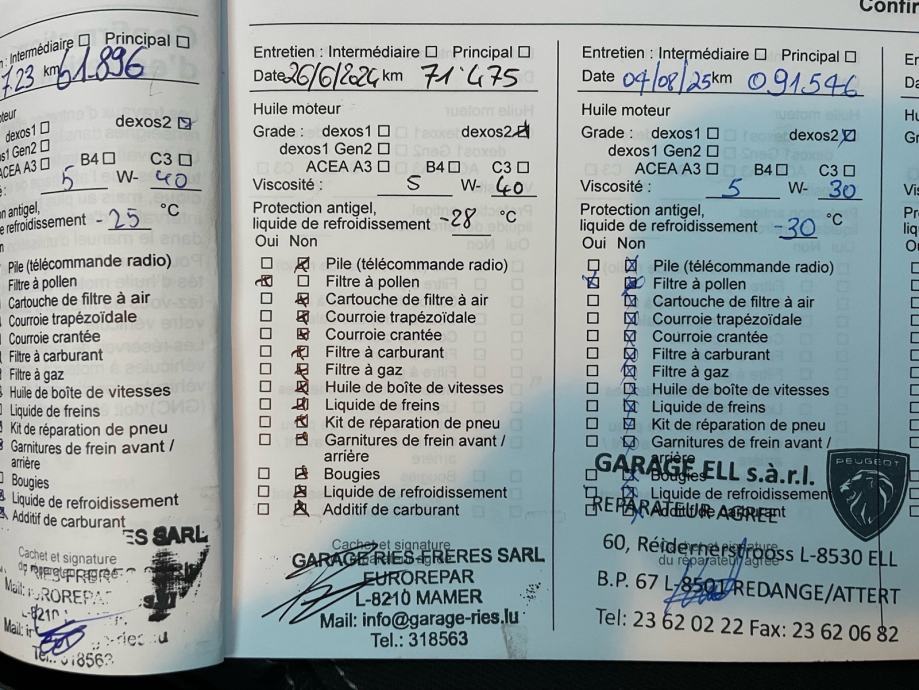 Confir
n : Intermédiaire ☐ Principal ☐
7.23 km 61.896
oteur
dexos1 ☐ dexos2 ☒
os1 Gen2 ☐
ACEA A3 ☐ B4 ☐ C3 ☐
é : 5 W- 40
on antigel,
e refroidissement -25 °C
n
Pile (télécommande radio)
Filtre à pollen
Cartouche de filtre à air
Courroie trapézoïdale
Courroie crantée
Filtre à carburant
Filtre à gaz
Huile de boîte de vitesses
Liquide de freins
Kit de réparation de pneu
Garnitures de frein avant /
arrière
Bougies
Liquide de refroidissement
Additif de carburant
ES SARL
Cachet et signature
RIES-FRERES
EUROREPA
-8210
Mail: ir -ries.lu
Tel.: 318563
Entretien : Intermédiaire ☐ Principal ☐
Date 26/6/2024 km 71'475
Huile moteur
Grade : dexos1 ☐ dexos2 ☒
dexos1 Gen2 ☐
ACEA A3 ☐ B4 ☐ C3 ☐
Viscosité : 5 W- 40
Protection antigel,
liquide de refroidissement -28 °C
Oui Non
☐ ☒ Pile (télécommande radio)
☒ ☐ Filtre à pollen
☐ ☒ Cartouche de filtre à air
☐ ☒ Courroie trapézoïdale
☐ ☒ Courroie crantée
☐ ☒ Filtre à carburant
☐ ☒ Filtre à gaz
☐ ☒ Huile de boîte de vitesses
☐ ☒ Liquide de freins
☐ ☒ Kit de réparation de pneu
☐ ☒ Garnitures de frein avant /
arrière
☐ ☒ Bougies
☐ ☒ Liquide de refroidissement
☐ ☒ Additif de carburant
Cachet et signature
du réparateur agréé
GARAGE RIES-FRERES SARL
EUROREPAR
L-8210 MAMER
Mail: info@garage-ries.lu
Tel.: 318563
Entretien : Intermédiaire ☐ Principal ☐
Date 04/08/25 km 091546
Huile moteur
Grade : dexos1 ☐ dexos2 ☒
dexos1 Gen2 ☐
ACEA A3 ☐ B4 ☐ C3 ☐
Viscosité : 5 W- 30
Protection antigel,
liquide de refroidissement -30 °C
Oui Non
☐ ☒ Pile (télécommande radio)
☒ ☒ Filtre à pollen
☐ ☒ Cartouche de filtre à air
☐ ☒ Courroie trapézoïdale
☐ ☒ Courroie crantée
☐ ☒ Filtre à carburant
☐ ☒ Filtre à gaz
☐ ☒ Huile de boîte de vitesses
☐ ☒ Liquide de freins
☐ ☒ Kit de réparation de pneu
☐ ☒ Garnitures de frein avant /
arrière
☐ ☒ Bougies
☐ ☒ Liquide de refroidissement
☐ ☒ Additif de carburant
Cachet et signature
du réparateur agréé
GARAGE ELL s.à.r.l.
PEUGEOT
REPARATEUR AGREE
60, Réidernerstrooss L-8530 ELL
B.P. 67 L-8501 REDANGE/ATTERT
Tel: 23 62 02 22 Fax: 23 62 06 82